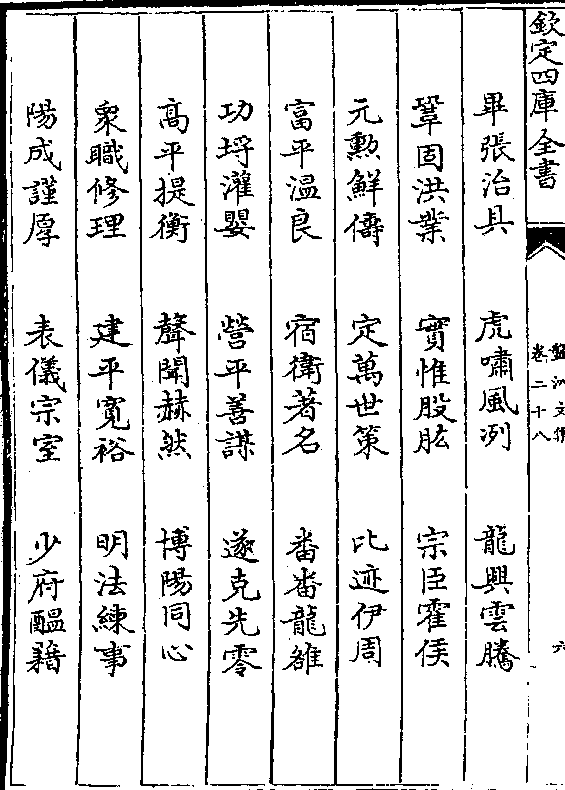 欽定四庫全書
盤洲文集
卷二十八
六
畢張治具 虎嘯風冽 龍興雲騰
鞏固洪業 實惟股肱 宗臣霍侯
元勲鮮儔 定萬世策 比迹伊周
富平温良 宿衛著名 番番龍雒
功埒灌嬰 營平善謀 遂克先零
髙平提衡 聲聞赫然 博陽同心
衆職修理 建平寛裕 明法練事
陽成謹厚 表儀宗室 少府醖藉